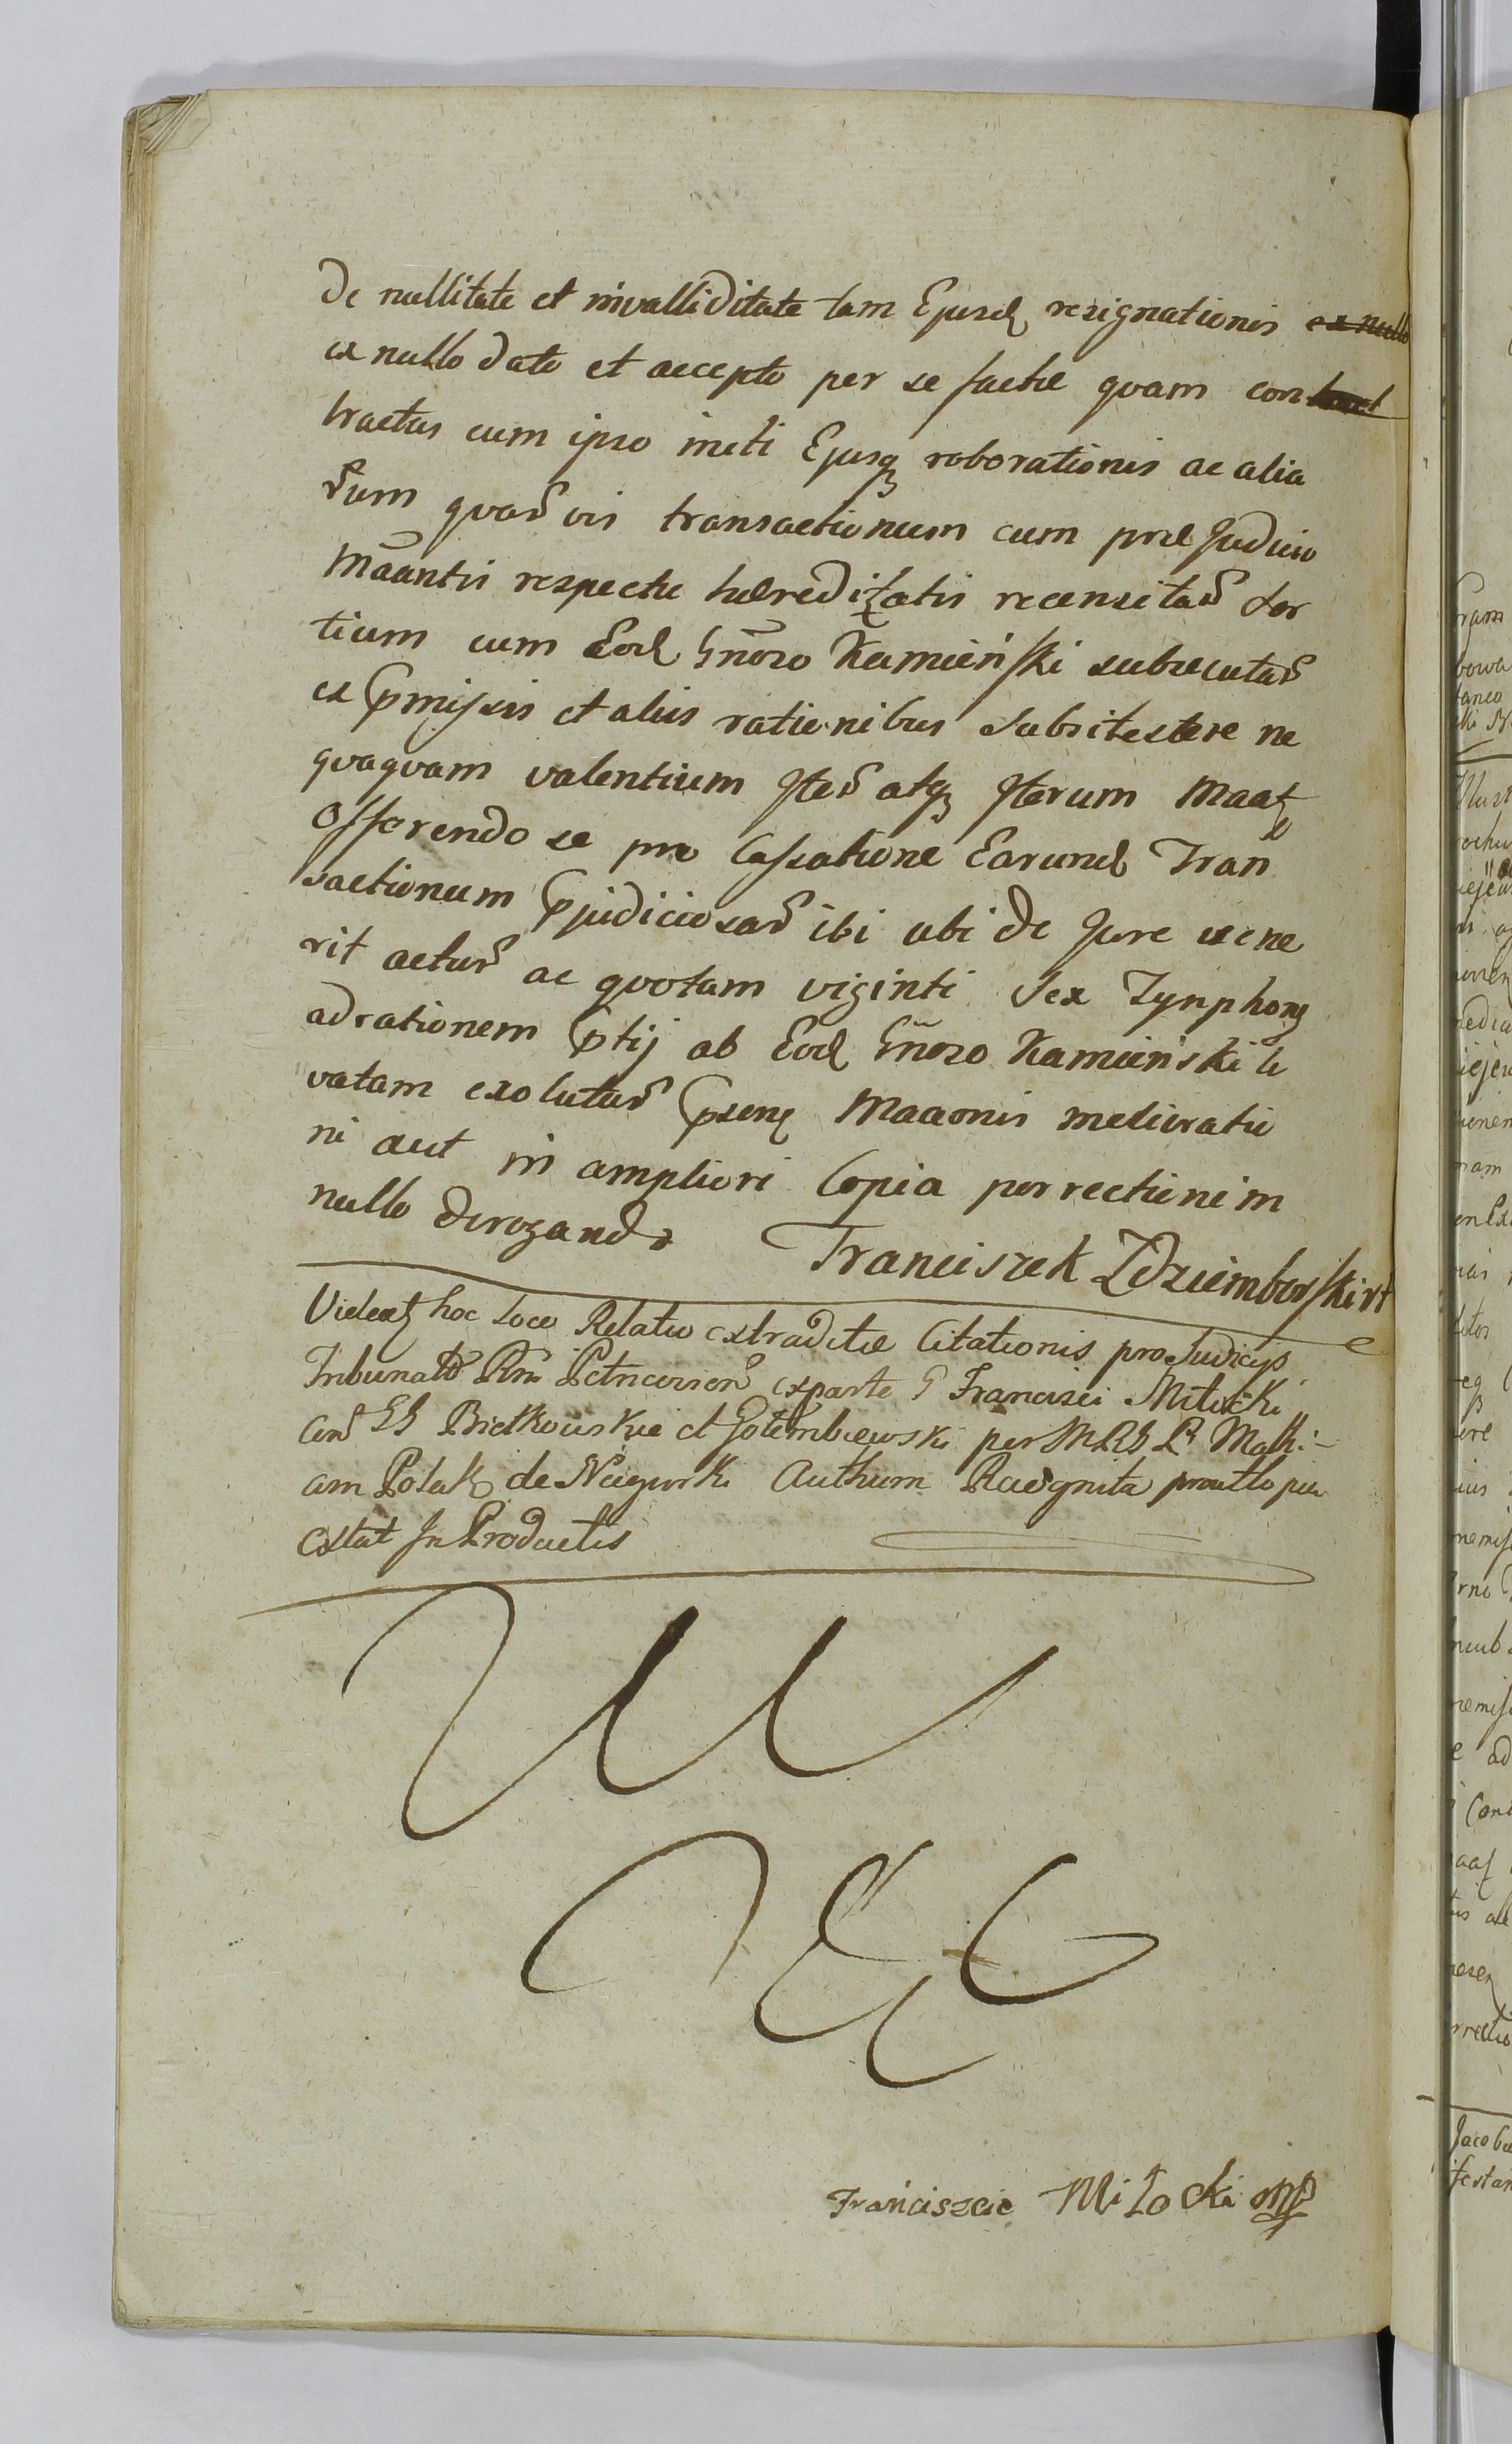 de nullitate et invalliditate tam Ejusd resignationis ex nullo
ex nullo dato et accepto per se factæ quam con
tractus cum ipso initi Ejusq roborationis ac alia
rum quarvis transactionum cum præ Judicio
Mãantis respectu hæreditatis recensitar Sor
tium cum Eod Gñoso Kamieński subsecutar
ex pmissis et aliis rationibus Subsitestere ne
quaquam valentium Iter atq Iterum Maat
Offerendo se pro Cassatione Earund Tran
sactionum pjudiciosar ibi ubi de Jure vene
rit actur ac quotam viginti Sex Tynphon
ad rationem ptij ab Eod Gñoso Kamieński le
vatam exolutur psen Maaonis melioratio
ni aut in ampliori Copia porrectioni in
nullo derogando Franciszek Zdziemborski
Videat hoc loco Relatio extraditæ Citationis pro Judicijs
Tribunal Rni Petricovien ex parte G Francisci Miłocki
con GG Bietkowskie et Gołembiewski per Mathi-
am Polak de Authum Recognita prout
extat In Productis
Franciszek Miłocki mp
ram
Jacobu
festan